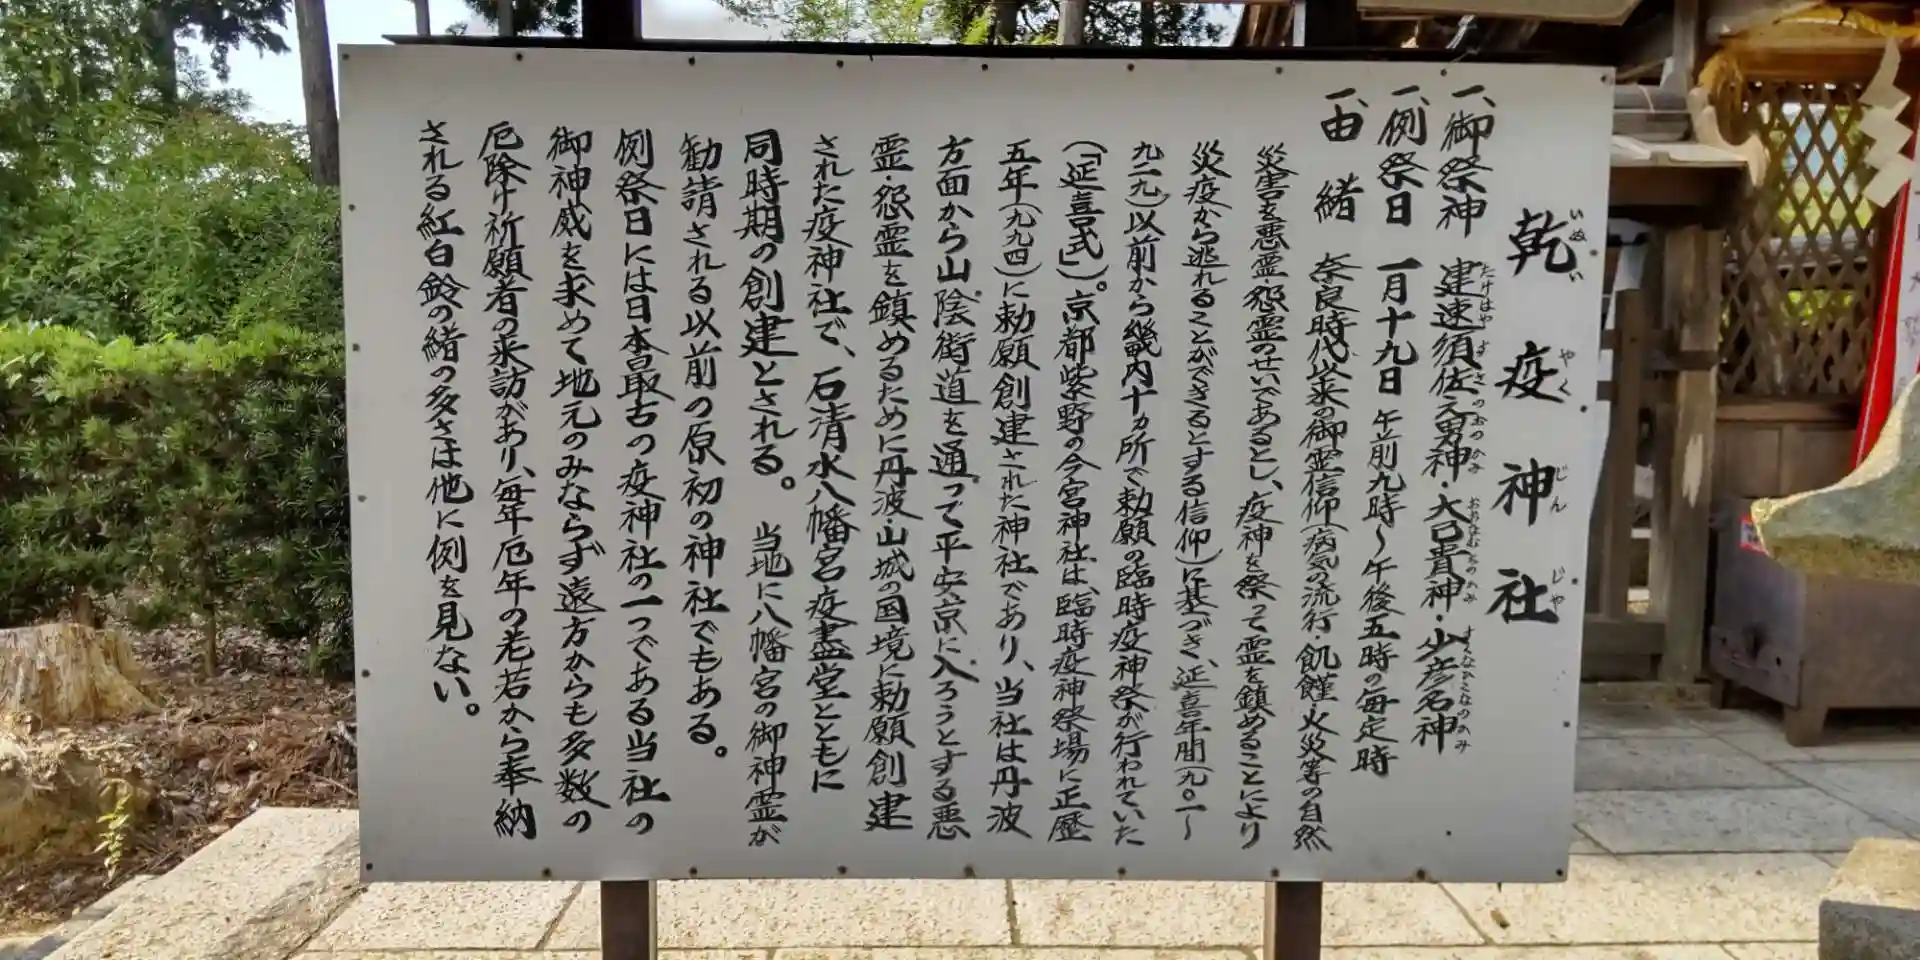 乾疫神社
一、御祭神 建速須佐之男神・大己貴神・少彦名神
一、例祭日 一月十九日 午前九時〜午後五時の毎定時
一、由緒 奈良時代以来の御霊信仰(病気の流行・飢饉・火災等の自然
災害を悪霊・怨霊のせいであるとし、疫神を祭って霊を鎮めることにより
災疫から逃れることができるとする信仰)に基づき、延喜年間(九〇一〜
九二九)以前から畿内十ヵ所で勅願の臨時疫神祭が行われていた
(「延喜式」)。京都紫野の今宮神社は、臨時疫神祭場に正歴
五年(九九四)に勅願創建された神社であり、当社は丹波
方面から山陰街道を通って平安京に入ろうとする悪
霊・怨霊を鎮めるために丹波・山城の国境に勅願創建
された疫神社で、石清水八幡宮疫盡堂とともに
同時期の創建とされる。 当地に八幡宮の御神霊が
勧請される以前の原初の神社でもある。
例祭日には日本最古の疫神社の一つである当社の
御神威を求めて地元のみならず遠方からも多数の
厄除け祈願者の来訪があり、毎年厄年の老若から奉納
される紅白鈴の緒の多さは他に例を見ない。